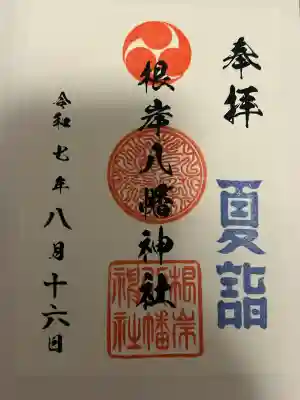 奉拝
夏詣
根岸八幡神社
根岸
八幡
神社
令和七年八月十六日